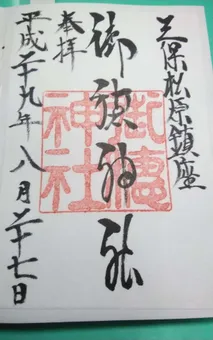 三保松原鎮座
御穂神社
御穂神社
奉拝
平成二十九年八月二十七日